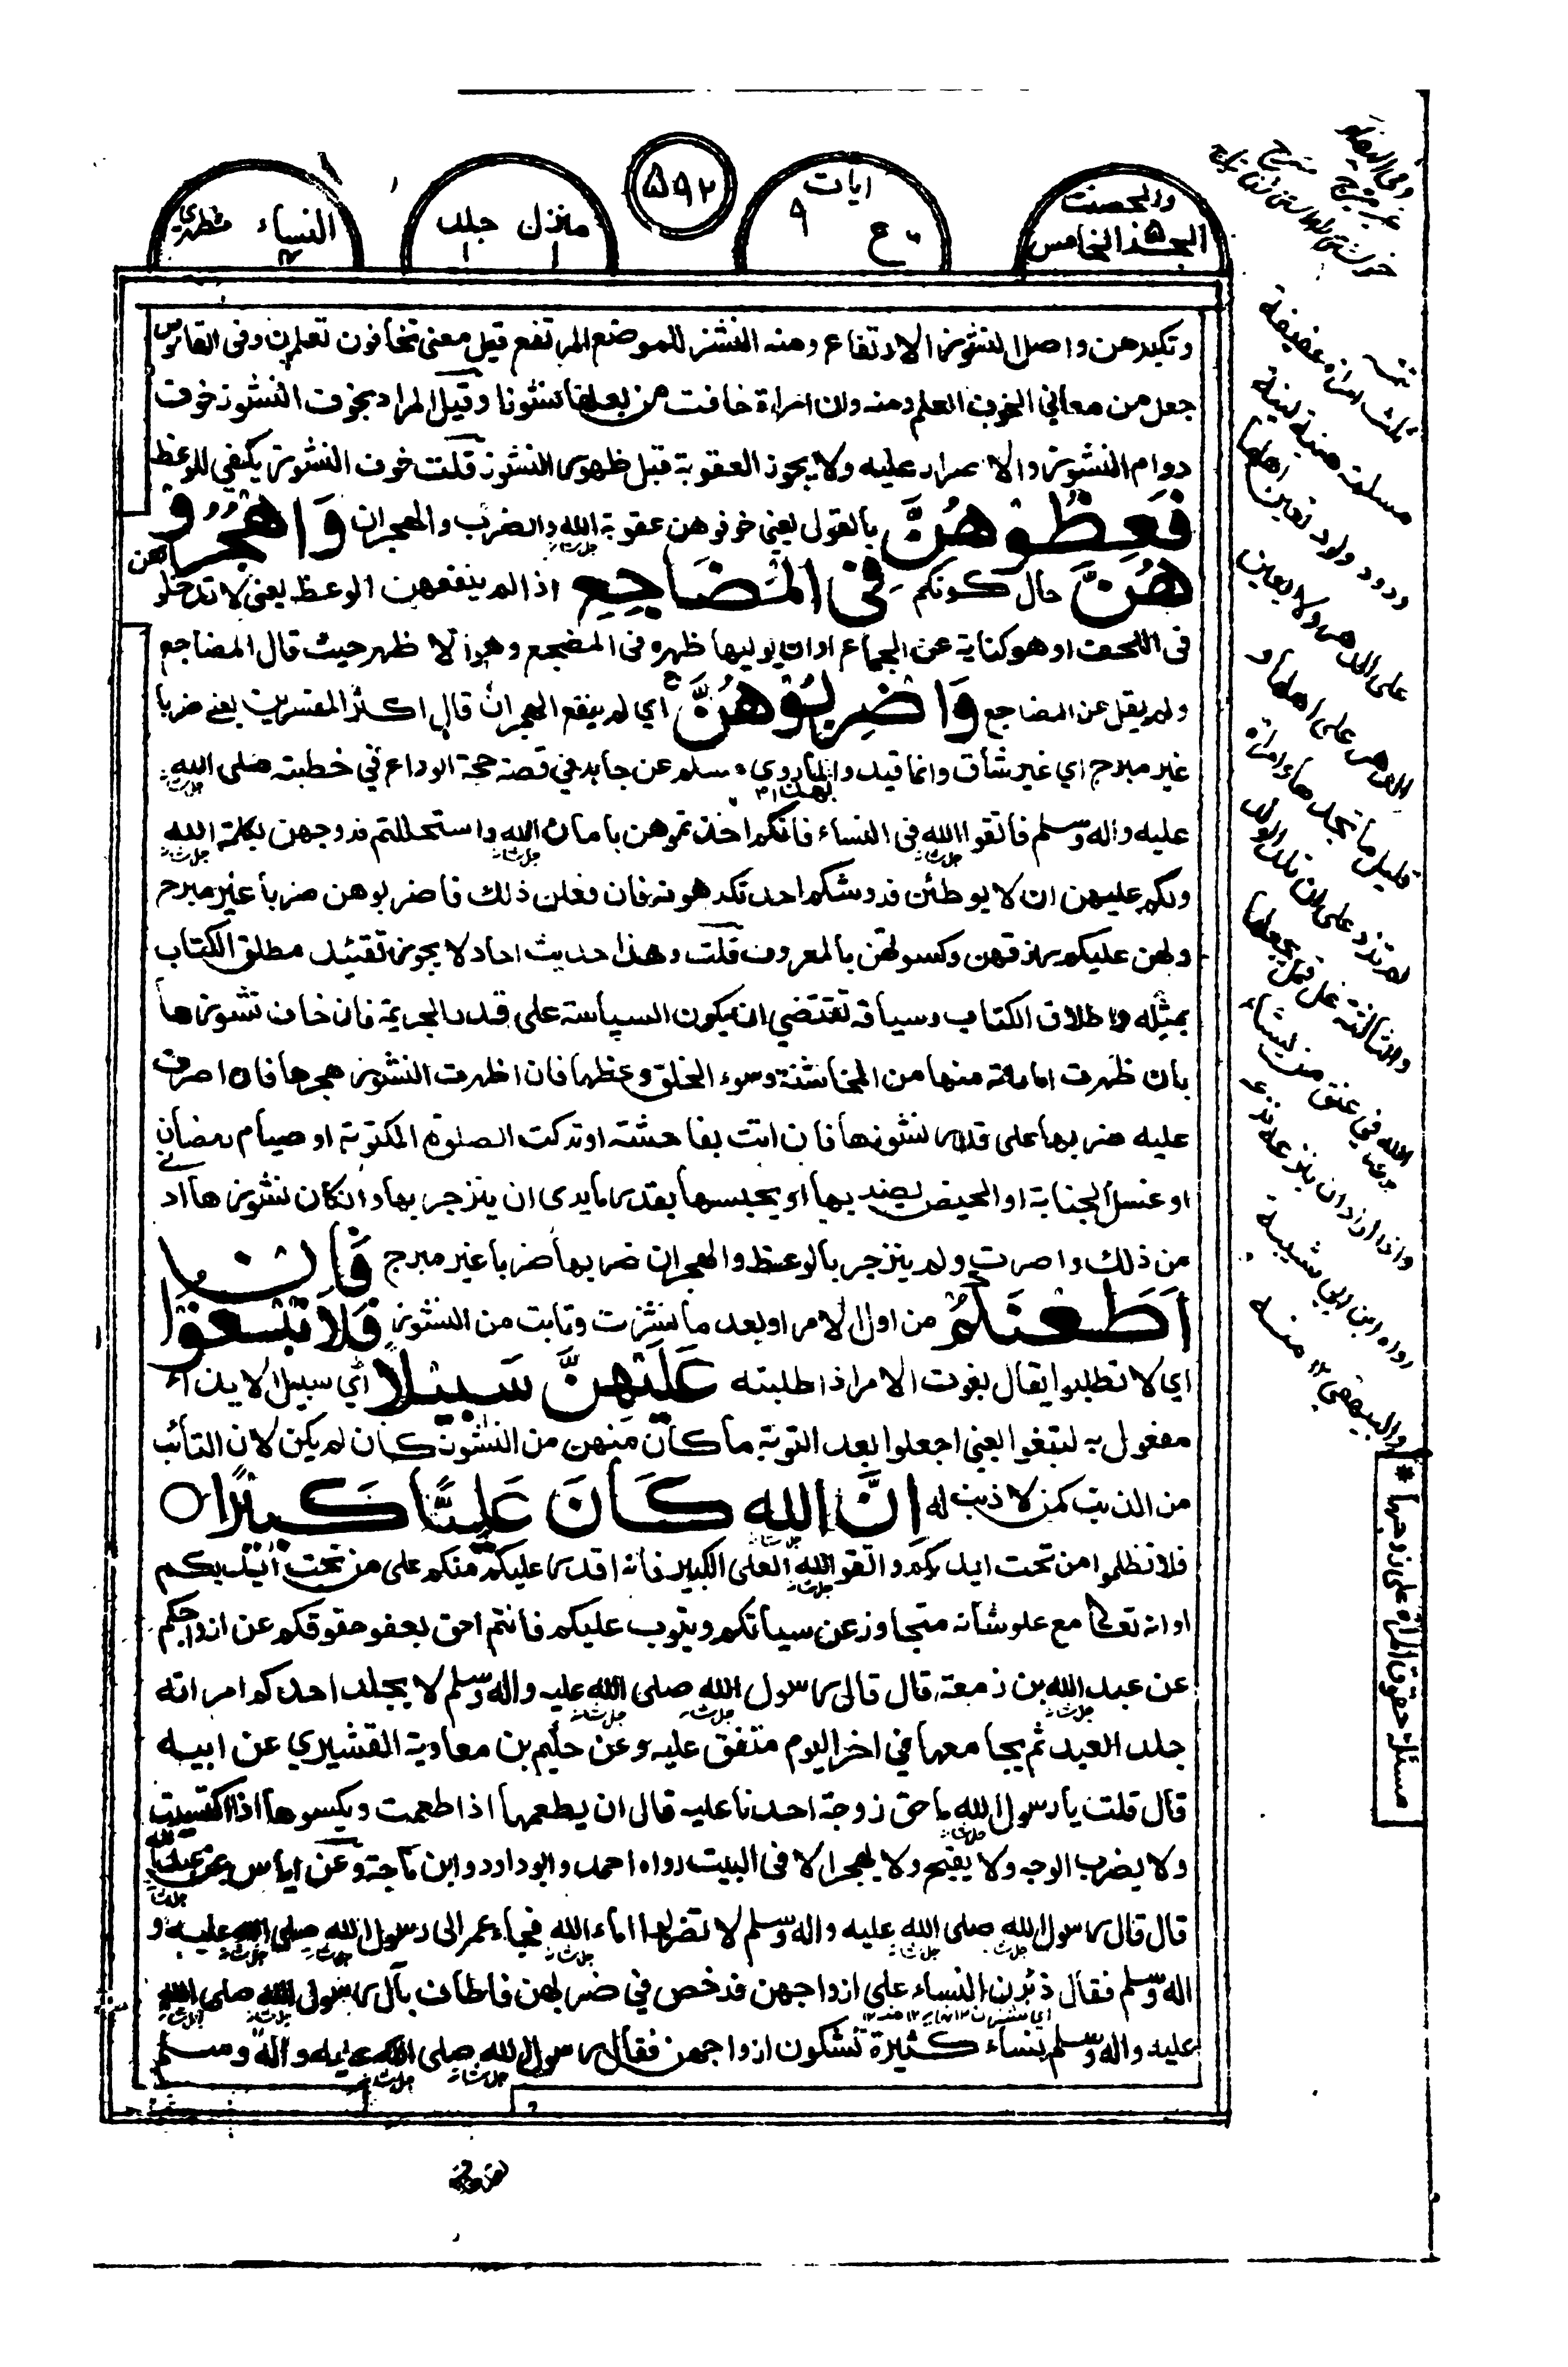 والمحصنت
الجزء الخامس ۵
ايات ۹
ع
۵۹۲
منزل ۱ جلد ۱
النساء ۴ مظهري
وتكبرهن واصل النشوز الارتفاع ومنه النشز للموضع المرتفع قيل معنى تخافون تعلمون وفى القاموس
جعل من معاني الخوف العلم ومنه وان امراة خافت من بعلها نشوزا وقيل المراد بخوف النشوز خوف
دوام النشوز والاصرار عليه ولا يجوز العقوبة قبل ظهور النشوز قلت خوف النشوز يكفي للوعظ
فَعِظُوْهُنَّ بالقول يعني خوفوهن عقوبة الله والضرب والهجران وَاهْجُرُوْ
هُنَّ حال كونكم فِى الْمَضَاجِعِ اذا لم ينفعهن الوعظ يعني لا تدخلوهن
فى اللحف او هو كناية عن الجماع او ان يوليها ظهره فى المضجع وهو الاظهر حيث قال المضاجع
ولم يقل عن المضاجع وَاضْرِبُوْهُنَّ اي لم ينفع الهجران قال اكثر المفسرين يعني ضربا
غير مبرح اي غير شاق وانما قيد والهذا لما روى مسلم عن جابر في قصة حجة الوداع في خطبته صلى الله
عليه واله وسلم فاتقوا الله فى النساء فانكم اخذتموهن بامان الله واستحللتم فروجهن بكلمة الله
ولكم عليهن ان لا يوطئن فروشكم احد تكرهونه فان فعلن ذلك فاضربوهن ضربا غير مبرح
ولهن عليكم رزقهن وكسوتهن بالمعروف قلت وهذا حديث احاد لا يجوز تقئيد مطلق الكتاب
بمثله واطلاق الكتاب وسياقه تقتضي ان يكون السياسة على قدر الجريمة فان خاف نشوزها
بان ظهرت اماراته منها من المخاشنة وسوء الخلق وعظها فان اظهرت النشوز هجرها فان اصرت
عليه ضربها على قدر نشوزها فان اتت بفاحشة او تركت الصلوة المكتوبة او صيام رمضان
او غسل الجنابة او الحيض يضربها او يحبسها بقدر ما يرى ان ينزجر بها وان كان نشوزها اد
من ذلك واصرت ولم ينزجر بالوعظ والهجران ضربها ضربا غير مبرح فَاِنْ
اَطَعْنَكُمْ من اول الامر او بعد ما نشزت وتابت من النشوز فَلَا تَبْغُوْا
اي لا تطلبوا يقال بغوت الامر اذا طلبته عَلَيْهِنَّ سَبِيْلًا اي سبيل الايذاء
مفعول به لتبغوا يعني اجعلوا بعد التوبة ما كان منهن من النشوز كان لم يكن لان التائب
من الذنب كمن لا ذنب له اِنَّ اللهَ كَانَ عَلِيًّا كَبِيْرًا
فلا تظلموا من تحت ايديكم واتقوا الله العلى الكبير فانه اقدر عليكم منكم على من تحت ايديكم
او انه تعالى مع علو شانه متجاوز عن سياتكم ويتوب عليكم فانتم احق بعفو حقوقكم عن ازواجكم
عن عبد الله بن زمعة قال قال رسول الله صلى الله عليه واله وسلم لا يجلد احدكم امراته
جلد العبد ثم يجامعها في اخر اليوم متفق عليه وعن حكيم بن معاوية القشيري عن ابيه
قال قلت يا رسول الله ما حق زوجة احدنا عليه قال ان يطعمها اذا طعمت ويكسوها اذا اكتسيت
ولا يضرب الوجه ولا يقبح ولا يهجر الا فى البيت رواه احمد وابو داود وابن ماجة وعن اياس بن عبد الله
قال قال رسول الله صلى الله عليه واله وسلم لا تضربوا اماء الله فجاء عمر الى رسول الله صلى الله عليه و
اله وسلم فقال ذئرن النساء على ازواجهن فرخص في ضربهن فاطاف بآل رسول الله صلى الله
عليه واله وسلم بنساء كثيرة تشكون ازواجهن فقال رسول الله صلى الله عليه واله وسلم
ثلث امراة عفيفة
مسلمة هينة لينة
ودود ولود تعين اهلها
على الدهر ولا يعين
الدهر على اهلها و
قليل ما تجدها وامراة
لا تزد على ان تلد الولد
والثالثة غل قمل يجعلها
الله في عنق من يشاء
واذا اراد ان ينزعه نزعه
رواه ابن ابي شيبة
والبيهقى ۱۲ منه
مسئلة حقوق المرأة على زوجها